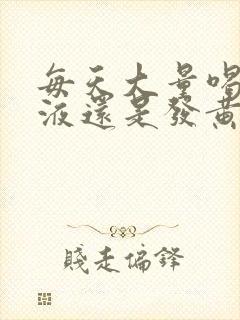 每天大量喝
液還是發黃
賤走偏鋒